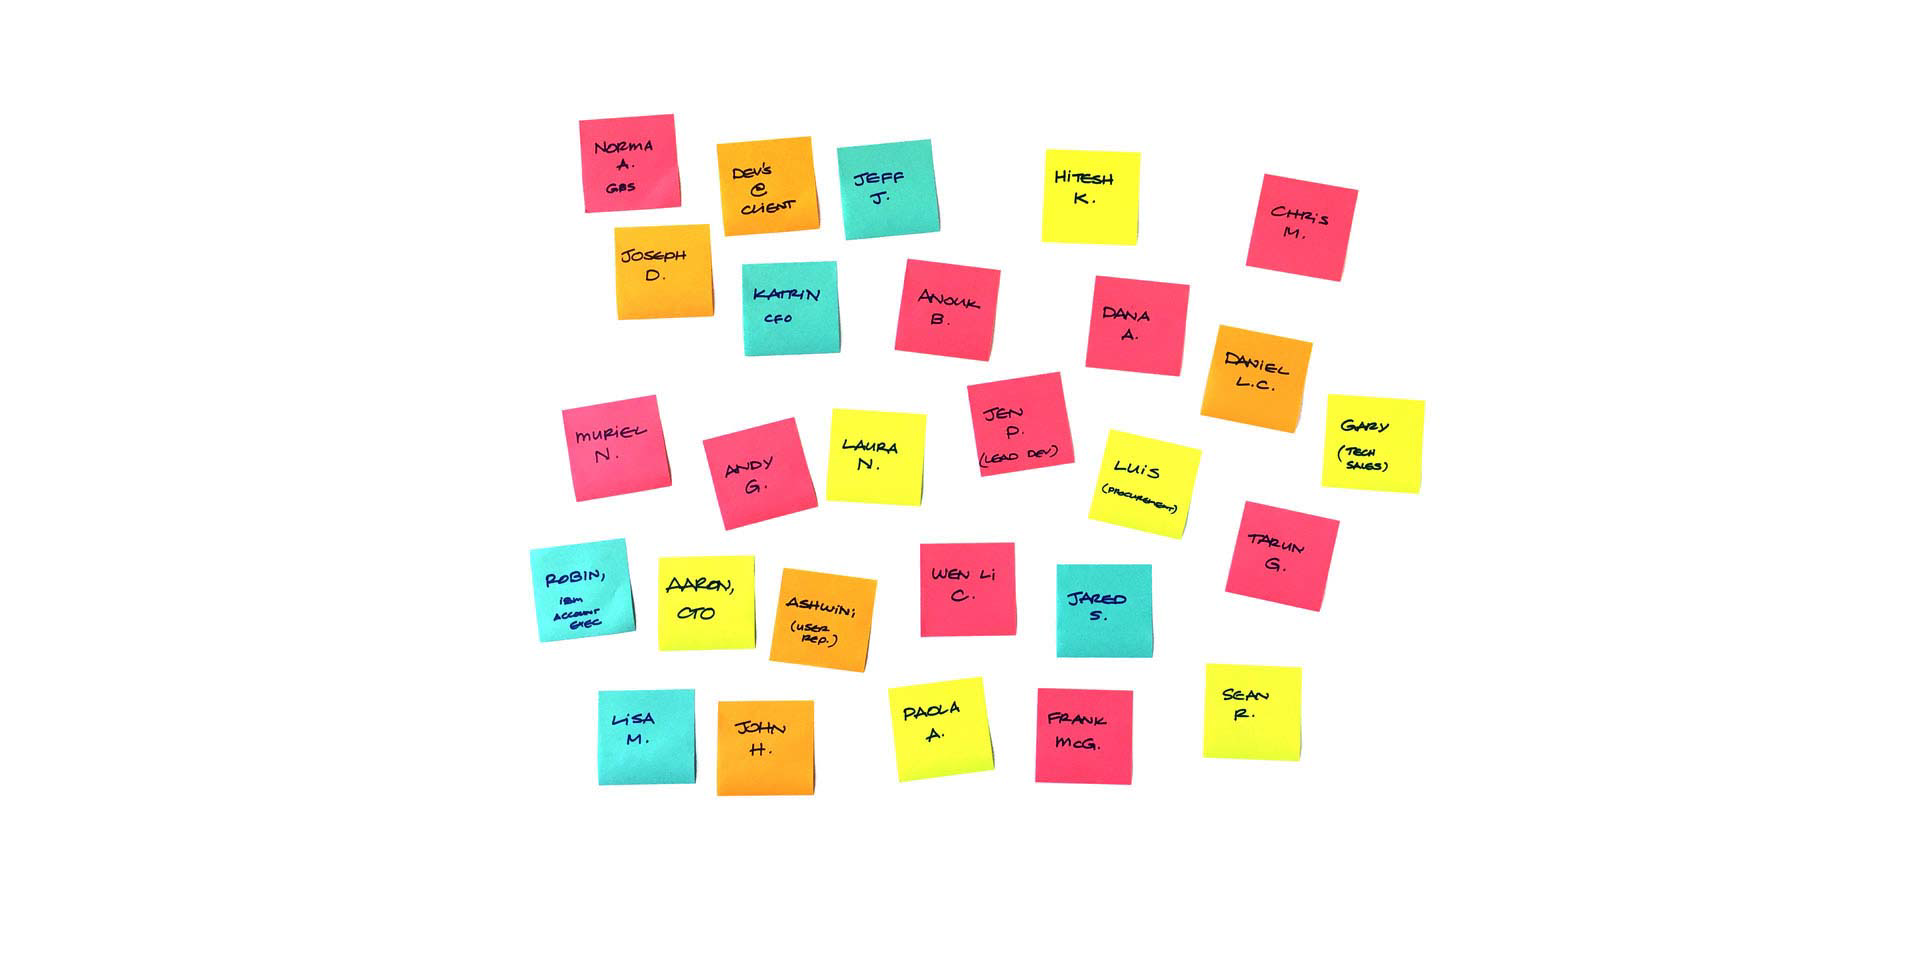 NORMA
A.
GBS
DEV'S
@
CLIENT
JEFF
J.
HITESH
K.
CHRIS
M.
JOSEPH
D.
KATRIN
CFO
ANOUK
B.
DANA
A.
DANIEL
L.C.
MURIEL
N.
ANDY
G.
LAURA
N.
JEN
P.
(LEAD DEV)
LUIS
(PROCUREMENT)
GARY
(TECH
SALES)
ROBIN,
IBM
ACCOUNT
EXEC
AARON,
CTO
ASHWIN;
(USER
REP.)
WEN LI
C.
JARED
S.
TARUN
G.
LISA
M.
JOHN
H.
PAOLA
A.
FRANK
McG.
SEAN
R.